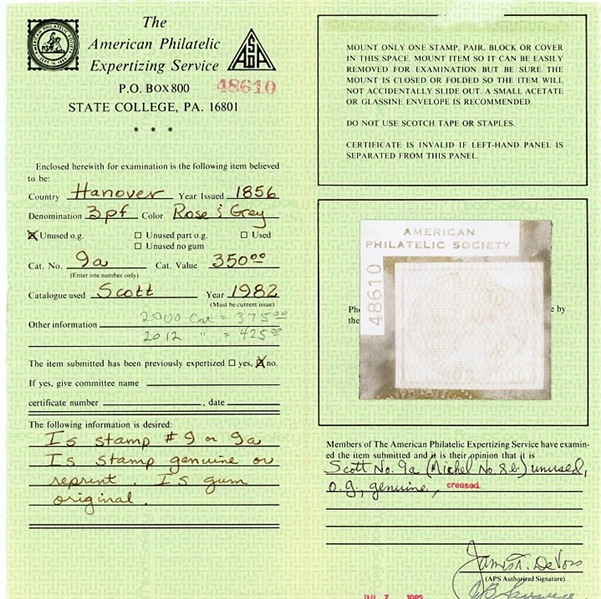 The
American Philatelic
Expertizing Service
P.O. BOX 800
48610
STATE COLLEGE, PA. 16801
* * *
Enclosed herewith for examination is the following item believed
to be:
Country Hanover Year Issued 1856
Denomination 3pf Color Rose & Grey
X Unused o.g. □ Unused part o.g. □ Used
□ Unused no gum
Cat. No. 9a Cat. Value 350.00
(Enter one number only)
Catalogue used Scott Year 1982
(Must be current issue)
Other information 2000 Cat = 375.00
2012 " = 425.00
The item submitted has been previously expertized □ yes, X no.
If yes, give committee name
certificate number , date
The following information is desired:
Is stamp # 9 or 9a
Is stamp genuine or
reprint. Is gum
original.
MOUNT ONLY ONE STAMP, PAIR, BLOCK OR COVER
IN THIS SPACE. MOUNT ITEM SO IT CAN BE EASILY
REMOVED FOR EXAMINATION BUT BE SURE THE
MOUNT IS CLOSED OR FOLDED SO THE ITEM WILL
NOT ACCIDENTALLY SLIDE OUT. A SMALL ACETATE
OR GLASSINE ENVELOPE IS RECOMMENDED.
DO NOT USE SCOTCH TAPE OR STAPLES.
CERTIFICATE IS INVALID IF LEFT-HAND PANEL IS
SEPARATED FROM THIS PANEL.
AMERICAN
PHILATELIC SOCIETY
48610
Pho
e by
the
Members of The American Philatelic Expertizing Service have examin-
ed the item submitted and it is their opinion that it is
Scott No. 9a (Michel No. 8b) unused,
o.g., genuine, creased.
James T. DeVoss
(APS Authorized Signature)